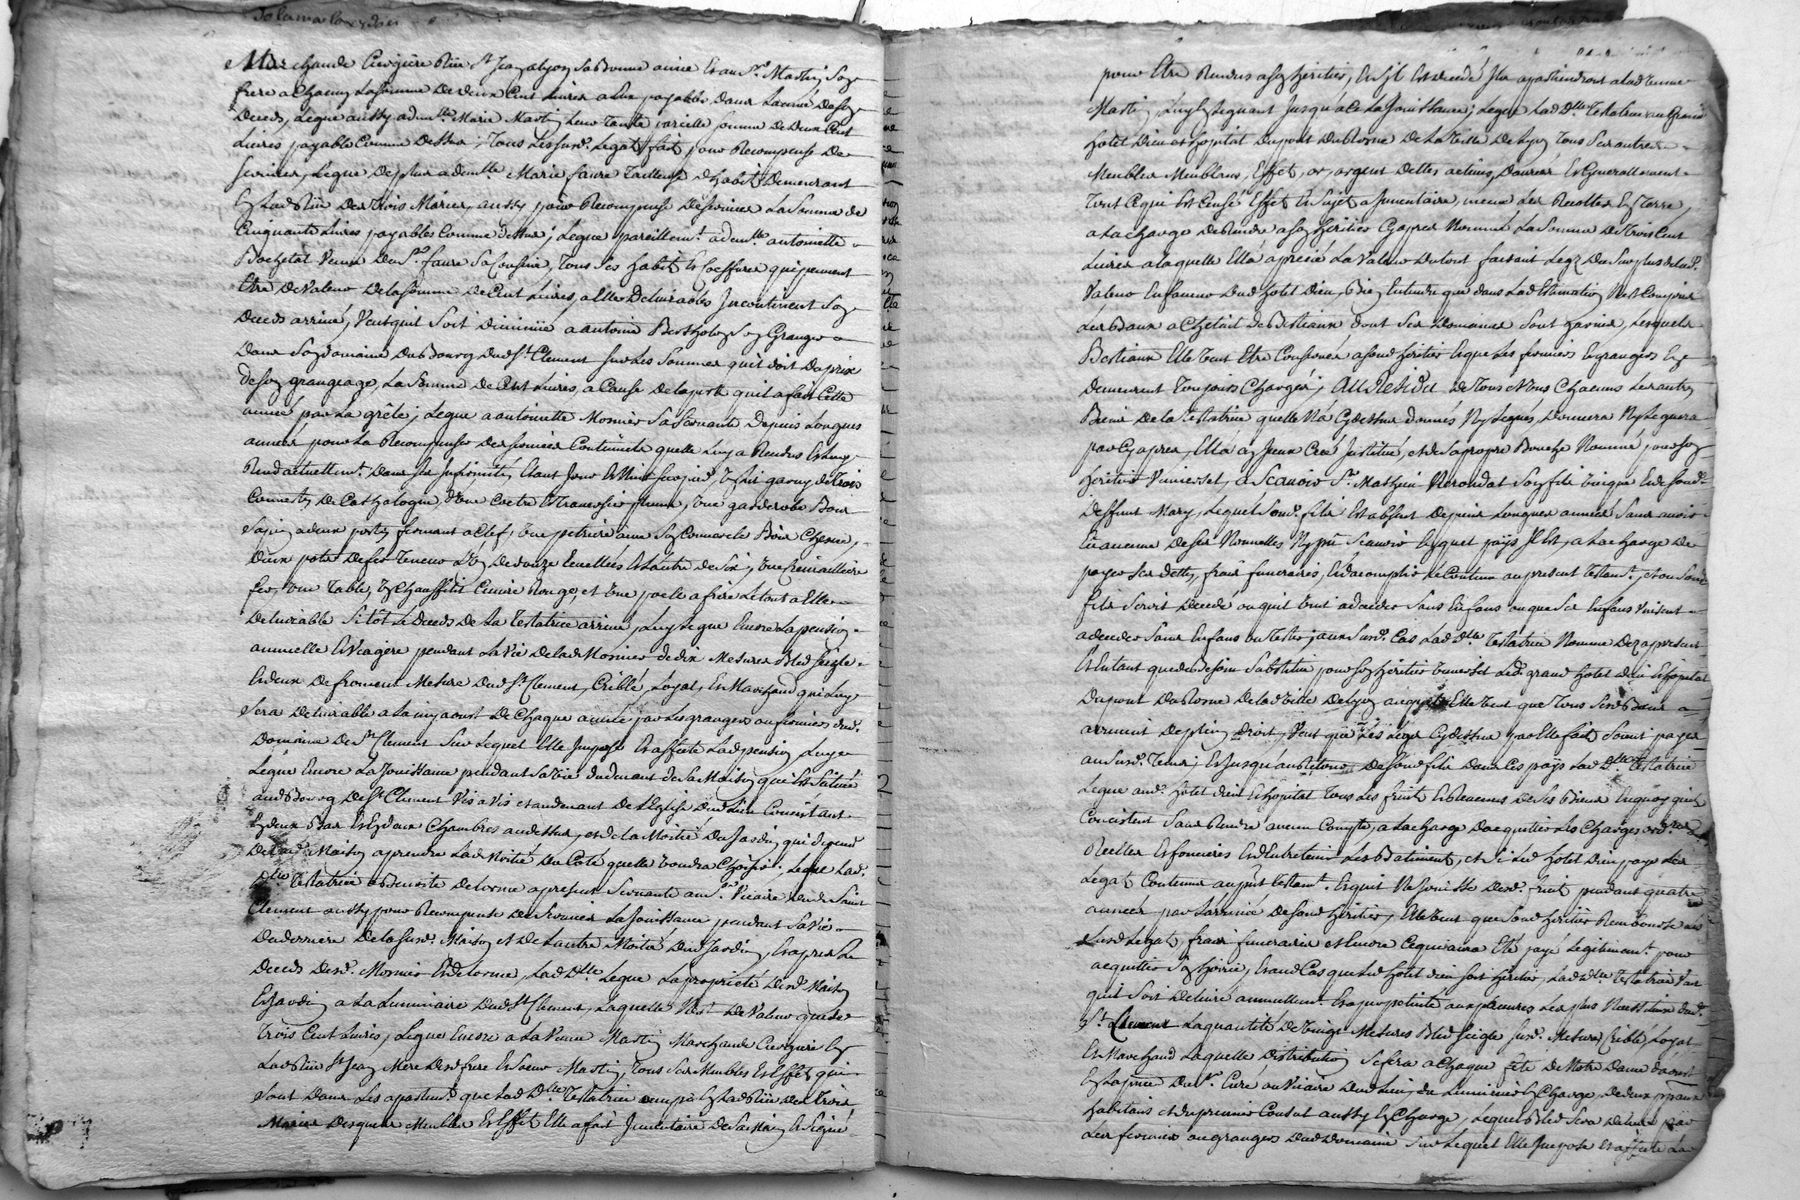 Marchande Ciergière Rüe St Jean a Lyon sa Bonne amie Et au Sr Martin son
frere a Chacun La somme De deux Cent Livres a Eux payables Dans Lannée De son
Deces, Legue aussy a dlle Marie Martin Leur Tante pareille somme De Deux Cent
Livres payable Comme Dessus; Tous Lessusd. Legats fait pour Recompense De
services, Legue De plus a demlle Marie faure Tailleuse d'habits Demeurant
En Lad Rüe Des Trois Maries, aussy pour Recompense De services La somme de
Cinquante Livres payables Comme dessus; Legue pareillemt. a demlle antoinette
Veuve Du Sr. faure sa Cousine, Tous ses habits Et Coeffures qui peuvent
Etre De Valeur De la somme De Cent Livres, a Elle Delivrables Incontinent Son
Deces arrivé, Veut quil soit Diminüé a antoine Son Granger
Dans Son Domaine Du Bourg Dud St. Clement sur Les sommes qu'il doit Du prix
De son grangeage, La somme De Cent Livres, a Cause De la perte qu'il a fait Cette
année par La grêle; Legue a antoinette Monier sa servante Depuis Longues
années pour La Recompenser Des services Continüels quelle Luy a Rendus Et Luy
Rend actuellemt. Dans ses Infirmités tant Jour Et Nuit Un Lit garny de Trois
Couvertes De Cathalogne, d'Une Coetre Et Traversin plume, Une garderobe Bois
Sapin a deux portes fermant a Clef, Une petriere avec son Couvercle Bois Chesne,
Deux pots De fer Teneur L'Un De douze Ecuellées Et L'autre de Six, Une Cremailliere
fer, Une Table, Un Chauffelit Cuivre Rouge, et Une poele a frire Le tout a Elle
Delivrable Sitôt Le Deces De La Testatrice arrivé, Luy Legue Encore La pension
annuelle Et Viagere pendant La Vie De lad Monier de dix Mesures Bled seigle
Et deux De froment Mesure Dud St. Clement, Criblé, Loyal, Et Marchand qui Luy
Sera Delivrable a La my aoust De Chaque année par Les grangers ou fermiers dud.
Domaine De St Clement Sur Lequel Elle Impose Et affecte Lad pension, Luy
Legue Encore La Jouissance pendant sa Vie du devant de sa Maison qui Est Située
aud Bourg De St Clement Vis a Vis et audevant De L'Eglise Dud Lieu Consistant
En deux Bas Et En deux Chambres au dessus, et de la Moitié Du Jardin qui depend
De lad. Maison a prendre Lad Moitié Du Coté quelle Voudra Choisir; Legue Lad.
Dlle Testatrice a Benoite Delorme a present Servante au Sr. Vicaire dud Saint
Clement aussy pour Recompense De Services La Jouissance pendant sa Vie
Du derriere De la susd. Maison et De Lautre Moitié Dud Jardin, Et apres Le
Deces Desd. Monier Et Delorme, Lad Dlle Legue La proprieté Desd. Maison
Et Jardin a La Luminaire Dud St Clement, Laquelle N'est De Valeur que de
Trois Cent Livres, Legue Encore a La Veuve Martin Marchande Ciergiere En
Lad Rüe St Jean Mere Desd frere Et Soeur Martin, Tous Ses Meubles Et Effets qui
sont Dans Les apartemt. que Lad Dlle Testatrice occupe En Lad Rüe Des Trois
Maries Desquels Meubles Et Effets Elle a fait Inventaire De sa Main Et Signé
pour Etre Rendus a son heritier, Et s'il Est decedé Ils apartiendront a lad Veuve
Martin, Luy En Leguant Jusqu'a Ce La Jouissance; Legue Lad Dlle Testatrice au Grand
hotel Dieu et hopital Du pont Du Rosne De La Ville De Lyon Tous Ses autres
Meubles Meublans, Effets, or, argent Dettes actives, Danrées Et Generallement
Tout Ce qui Est Censé Effet Et Sujet a Inventaire, meme Les Recoltes En Terre,
a La charge De Rendre a son heritier Cy apres Nommé La somme De Trois Cent
Livres a laquelle Elle a aprecié La Valeur Du tout faisant Legs Du Surplus de lad.
Valeur En faveur Dud hotel Dieu, Bien Entendu que dans Lad Estimation N'est Compris
Les Baux a Chetail De Bestiaux dont Ses Domaines Sont garnis, Lesquels
Bestiaux Elle Veut Etre Conservés a Sond heritier Et que Les fermiers Ou grangers En
demeurent Toujours Chargés; Au Residu de Tous Et Uns Chacuns Les autres
Biens De la Testatrice quelle N'a Cy dessus donnés Ny Legués, Donnera Ny Leguera
par Cy apres, Elle a fait Creé Institué, et de sa propre Bouche Nommé pour Son
heritier Universel, a Scavoir Sr. Mathieu Verondat Son fils Unique Et de feu Sr.
Deffunt Mary, Lequel Sond. fils Est absent Depuis Longues années Sans avoir
Eu aucune De Ses Nouvelles Ny pû Scavoir En quel pays Il Est, a La charge De
payer Ses dettes, frais funeraires, Et d'acomplir Le Contenu au present Testamt., et ou Sond
fils Seroit Decedé ou quil Vint a deceder Sans Enfans ou que Ses Enfans Vinssent
a deceder Sans Enfans ou Tester; aux Susd. Cas Lad Dlle Testatrice Nomme Des a present
Et En tant que de besoin Substitue pour Son heritier Universel Led. grand hotel dieu Et hopital
Du pont Du Rosne De lad Ville De Lyon auquel Elle Veut que Tous Sesd Biens
arrivent De plein Droit, Veut que Les Legs Cy dessus par Elle faits Soient payés
au Susd. Tems; Et Jusqu'au Retour De Sond fils Dans Ces pays Lad Dlle Testatrice
Legue aud. hotel Dieu Et hopital Tous Les fruits Et Revenus De Ses Biens En quoy qu'ils
Consistent Sans Rendre aucun Compte, a La charge D'acquitter Les Charges ordres
Reelles Et foncieres Et d'Entretenir Les Batiments, et Si Led hotel Dieu paye Les
Legats Contenus au prst Testamt. Et quil Ne Jouisse Desd. fruits pendant quatre
années par L'arrivée De sond heritier, Elle Veut que Sond heritier Rembourse
Lesd. Legats, frais funeraires et Encore Ce qui aura Eté payé Legitimemt. pour
acquitter Son hoirie, Et aud Cas que Led hotel Dieu Soit heritier, Lad Dlle Testatrice Veut
quil Soit Delivré annuellemt. Et a perpetuité aux pauvres Les plus Necessiteux dud.
St. Clement La quantité De Vingt Mesures Bled Seigle susd. Mesure, Criblé, Loyal
Et Marchand Laquelle Distribution Se fera a Chaque fete De Notre Dame d'aoust
En La presence Du Sr. Curé ou Vicaire Dud Lieu, du Luminier En Charge, de deux Principaux
habitans et du premier Consul aussy En Charge, Lequel Bled Sera Delivré par
Les fermiers ou grangers Dud Domaine Sur Lequel Elle Impose Et affecte La